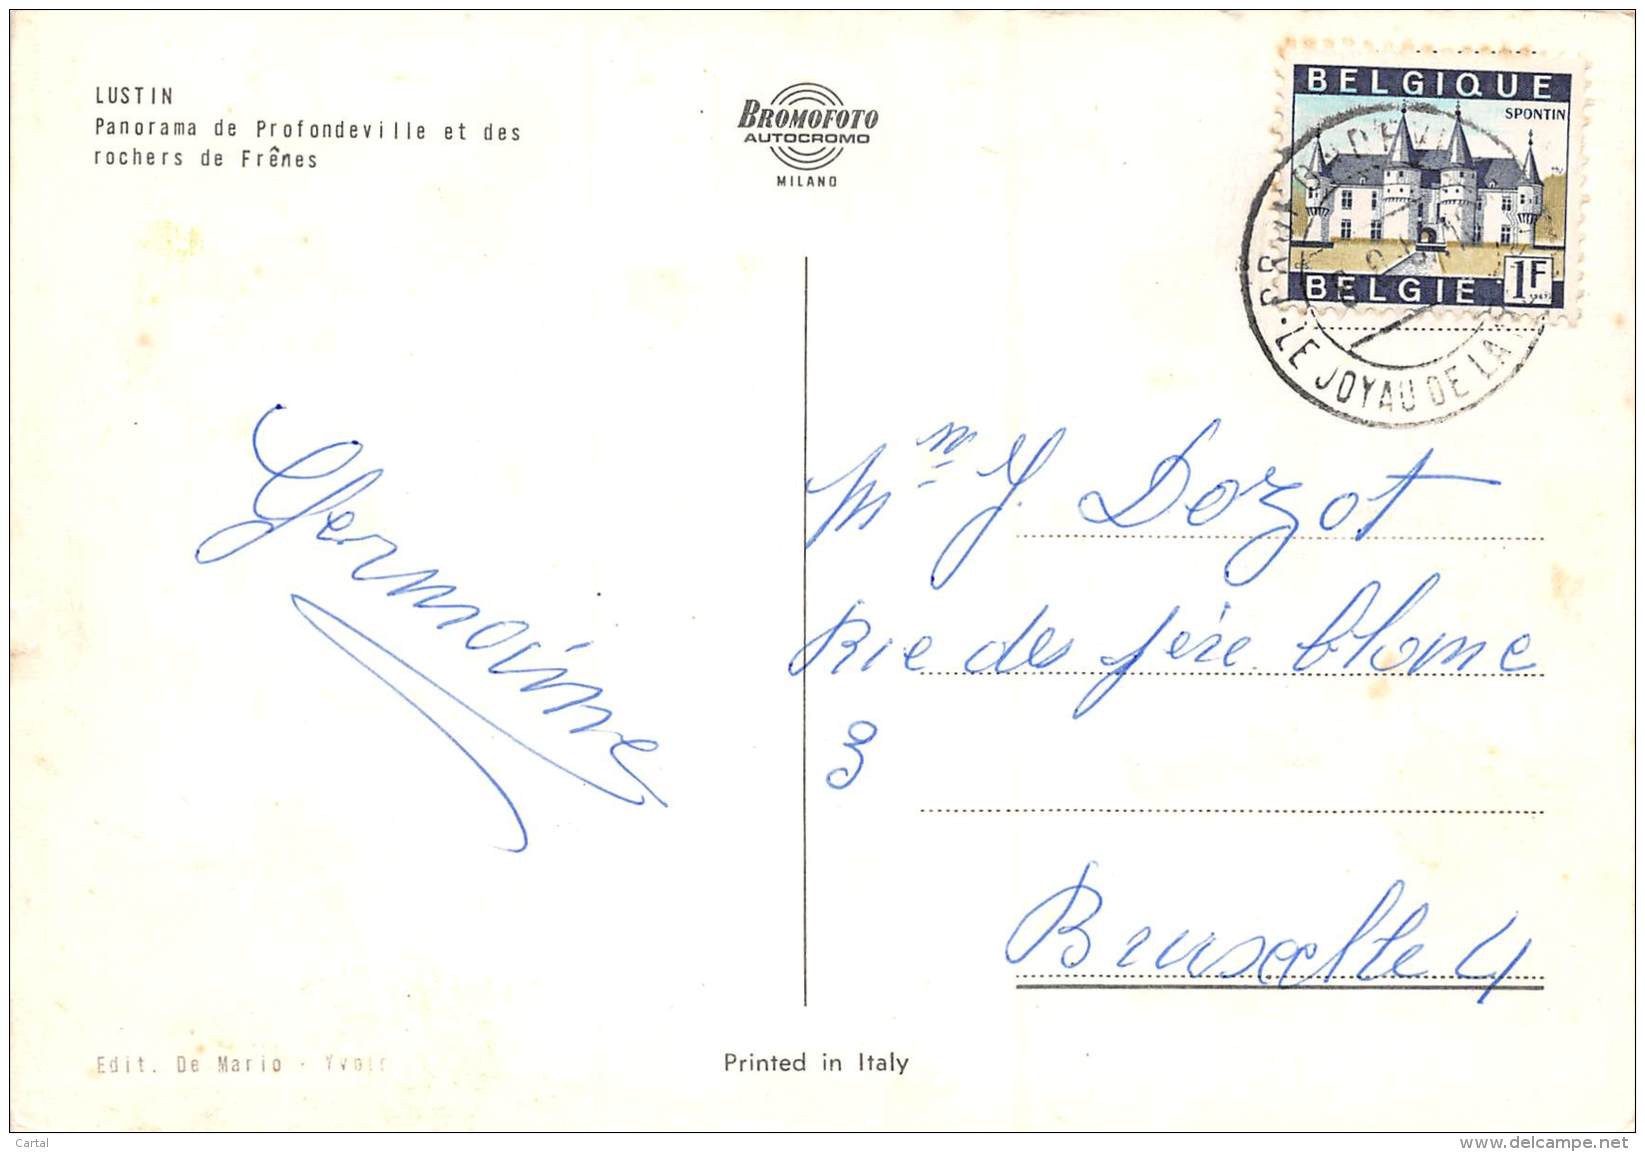 LUSTIN
Panorama de Profondeville et des
rochers de Frênes
BROMOFOTO
AUTOCROMO
MILANO
BELGIQUE
SPONTIN
1F
BELGIË
LE JOYAU DE LA
Germaine
Mm J. Dozot
Rue des père blome
3
Bruxelle 4
Edit. De Mario - Yvoir
Printed in Italy
Cartal
www.delcampe.net